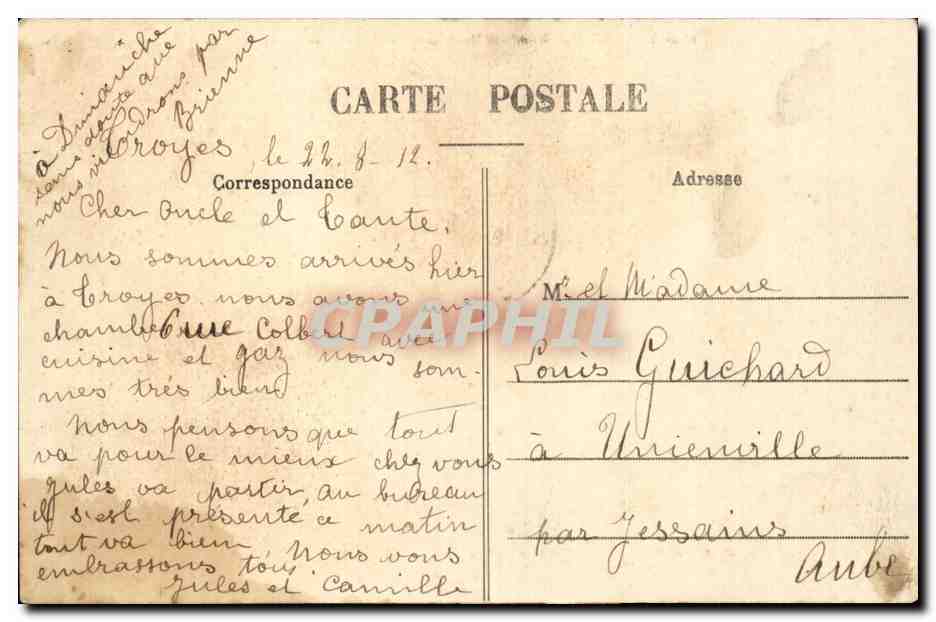 CARTE POSTALE
à Dimanche
sans doute que
nous viendrons par
Brienne
Troyes, le 22-8-12.
Correspondance
Cher Oncle et Tante.
Nous sommes arrivés hier
à Troyes nous avons une
chambre 6 rue Colbert avec
cuisine et gaz nous som-
mes très bien
Nous pensons que tout
va pour le mieux chez vous
Jules va partir, au bureau
il s'est présenté ce matin
tout va bien Nous vous
embrassons tous
Jules et Camille
Adresse
Mr et Madame
Louis Guichard
à Unienville
par Jessains
Aube
CPAPHIL